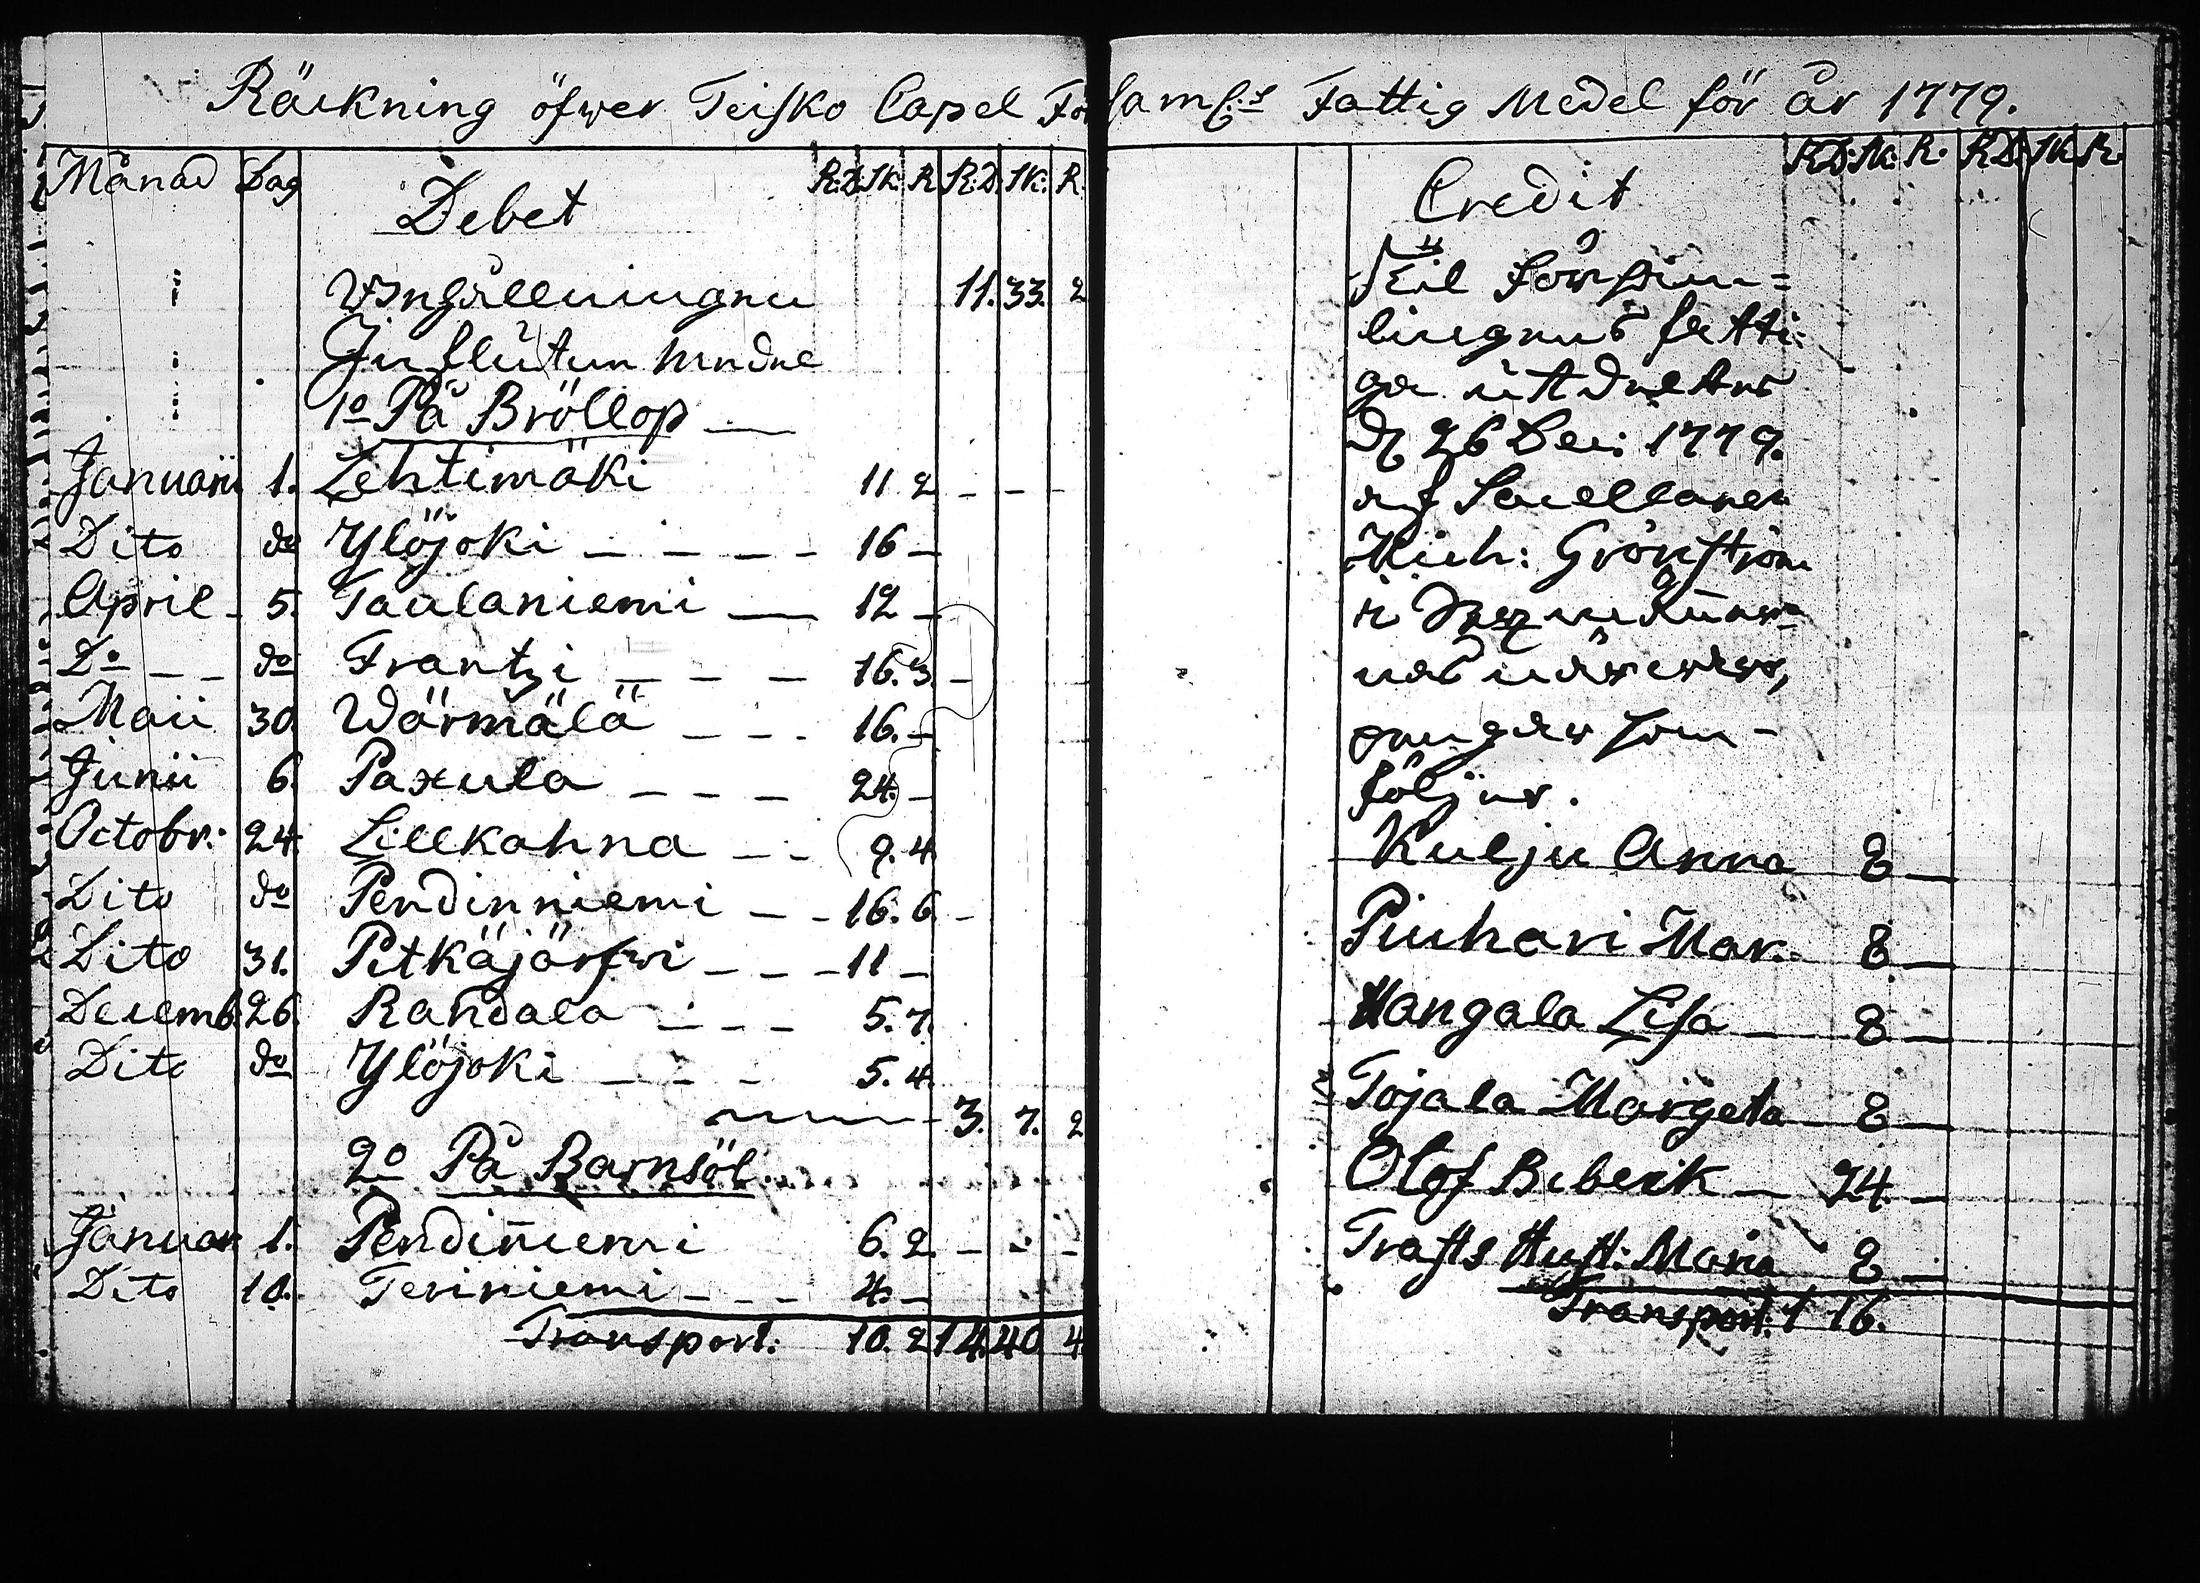 Räckning öfwer Teisko Capel Församl:s Fattig Medel för år 1779.
Månad Dag Debet R:D. SK: R R:D. SK: R.
Behållningen 11. 33. 2
Influtne medel
1o På Bröllop
Januarii 1. Lehtimäki 11 2 - - -
Dito do Ylöjoki - - - - 16 -
April - 5. Taulaniemi - 12 -
Do - - do Frantzi - - - 16. 3. -
Maii 30 Wärmälä - - - 16. -
Junii 6. Paxula - - - 24. -
Octobr: 24. Lillkahna - - 9. 4
Dito do Pendinniemi - - 16. 6. -
Dito 31. Pitkäjärfwi - - - 11 -
Decemb. 26. Randala - - - 5. 7.
Dito do Ylöjoki - - - 5. 4.
3. 7. 2
2o På Barnsöl
Januar 1. Pendiniemi 6. 2. - - -
Dito 10. Teriniemi - - - 4. -
Transport: 10. 2 14. 40. 4.
Credit RD: SK: R. RD: SK R.
Til Försam=
lingenes fatti-
ga utdeltes
d 26 Dec: 1779.
af Sacellanen
Mich: Grönström
i
närwaro,
pengar som -
följer.
Kulju Anna 8 -
Piuhari Mar. 8 -
Hangala Lisa - 8 -
Tojala Margeta - 8 -
Olof Biberik - 24 -
Trasts Hust: Maria 8 -
Transport: 1 16.